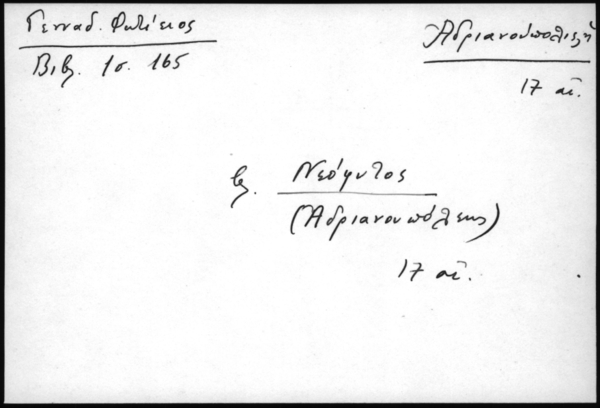 Γενναδ. Φωτίειος
Βιβλ. 1σ. 165
Ἀδριανουπόλεως
17 αἰ.
βλ. Νεόφυτος
(Ἀδριανουπόλεως)
17 αἰ.